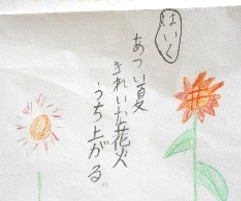 はいく
あつい夏
きれいな花火
うち上がる。